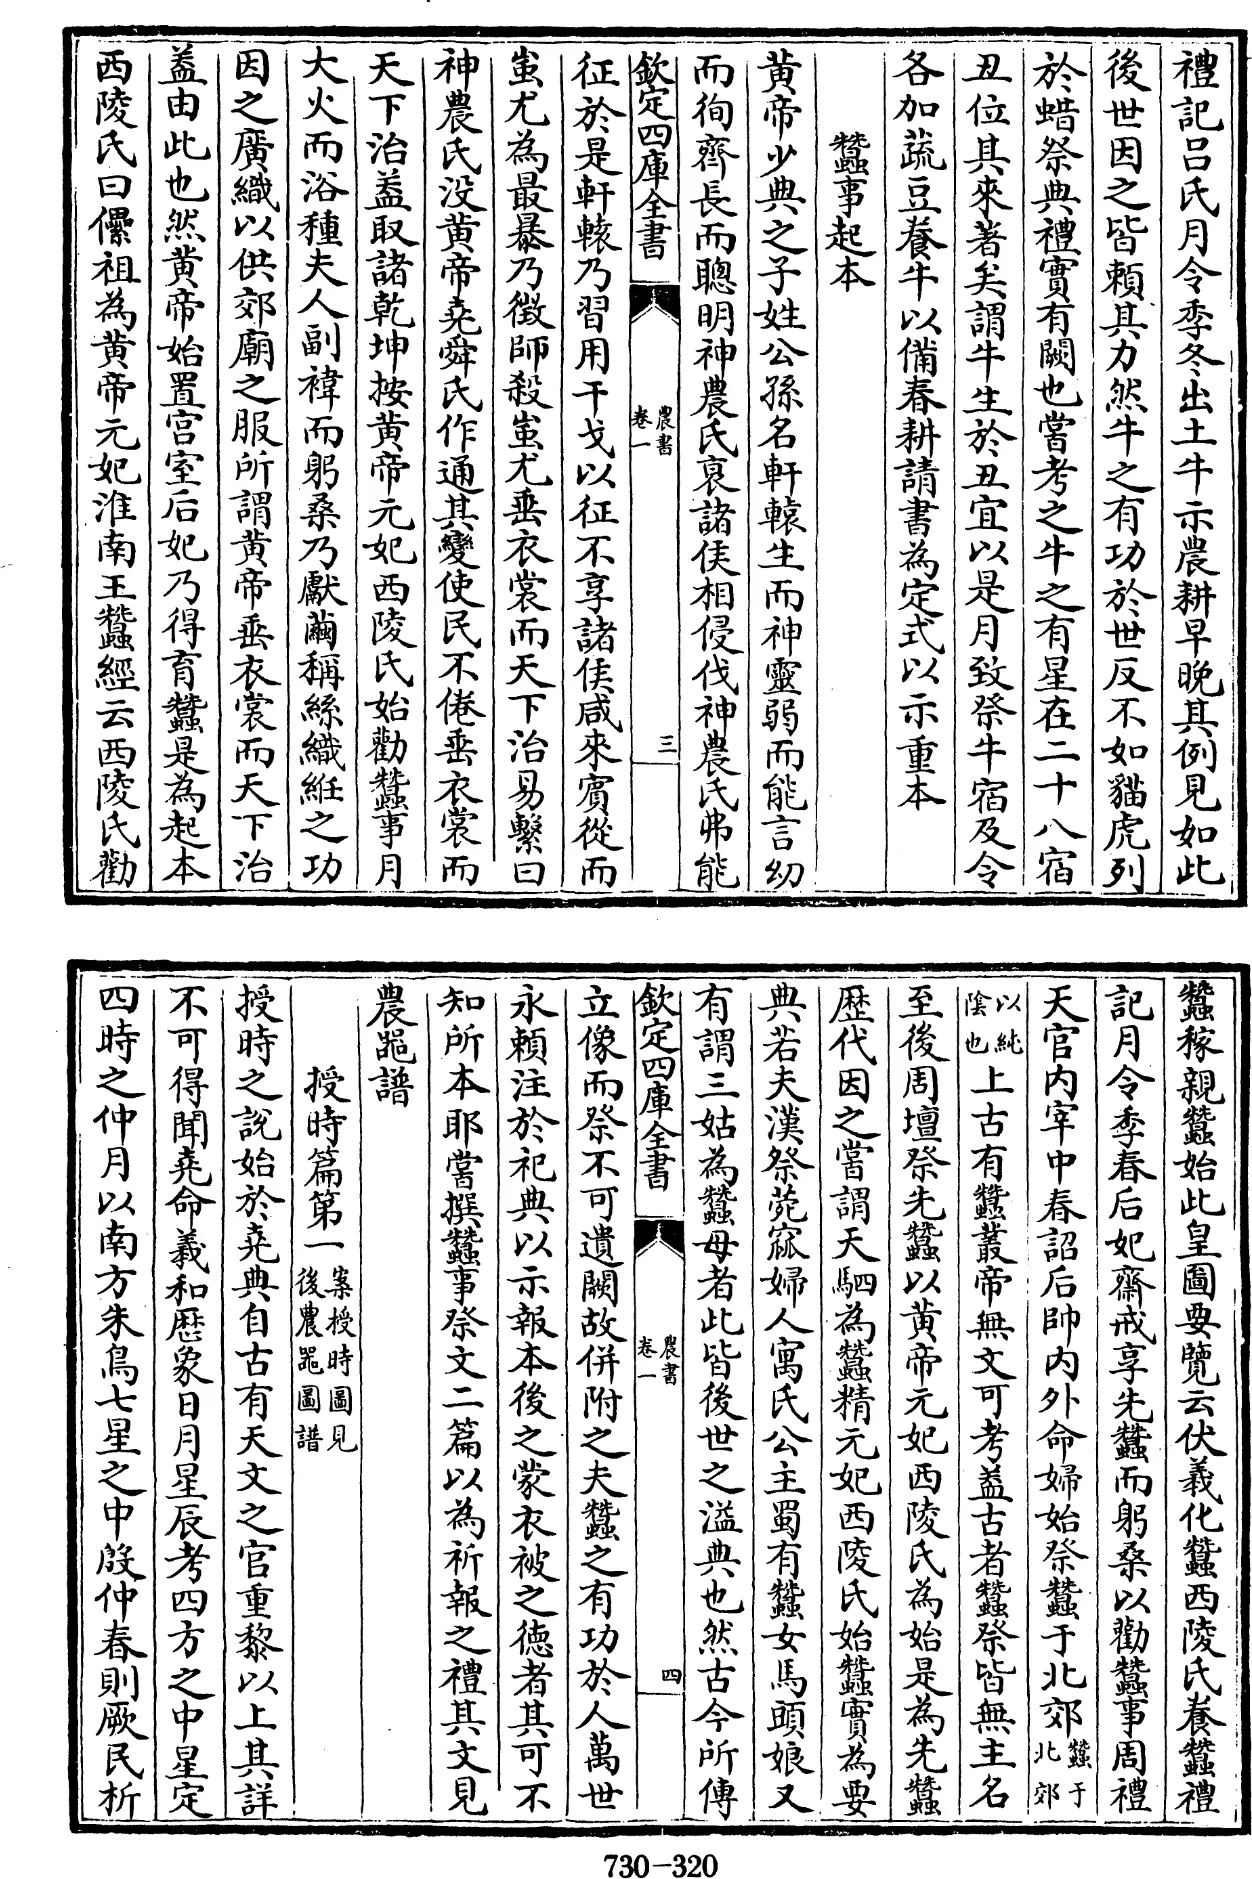 禮記吕氏月令季冬出土牛示農耕早晚其例見如此
後世因之皆頼其力然牛之有功於世反不如貓虎列
於蜡祭典禮實有闕也嘗考之牛之有星在二十八宿
丑位其來著矣謂牛生於丑宜以是月致祭牛宿及令
各加蔬豆養牛以備春耕請書為定式以示重本
蠶事起本
黄帝少典之子姓公孫名軒轅生而神靈弱而能言幼
而徇齊長而聰明神農氏衰諸侯相侵伐神農氏弗能
欽定四庫全書
農書
卷一
三
征於是軒轅乃習用干戈以征不享諸侯咸來賓從而
蚩尤為最暴乃徴師殺蚩尤垂衣裳而天下治易繫曰
神農氏没黄帝堯舜氏作通其變使民不倦垂衣裳而
天下治葢取諸乾坤按黄帝元妃西陵氏始勸蠶事月
大火而浴種夫人副褘而躬桑乃獻繭稱絲織絍之功
因之廣織以供郊廟之服所謂黄帝垂衣裳而天下治
葢由此也然黄帝始置宫室后妃乃得育蠶是為起本
西陵氏曰儽祖為黄帝元妃淮南王蠶經云西陵氏勸
蠶稼親蠶始此皇圖要覽云伏羲化蠶西陵氏養蠶禮
記月令季春后妃齋戒享先蠶而躬桑以勸蠶事周禮
天官内宰中春詔后帥内外命婦始祭蠶于北郊蠶于
北郊
以純
陰也上古有蠶叢帝無文可考葢古者蠶祭皆無主名
至後周壇祭先蠶以黄帝元妃西陵氏為始是為先蠶
歴代因之嘗謂天駟為蠶精元妃西陵氏始蠶實為要
典若夫漢祭菀窳婦人寓氏公主蜀有蠶女馬頭娘又
有謂三姑為蠶母者此皆後世之溢典也然古今所傳
欽定四庫全書
農書
卷一
四
立像而祭不可遺闕故併附之夫蠶之有功於人萬世
永頼注於祀典以示報本後之蒙衣被之德者其可不
知所本耶嘗撰蠶事祭文二篇以為祈報之禮其文見
農噐譜
授時篇第一案授時圖見
後農噐圖譜
授時之説始於堯典自古有天文之官重黎以上其詳
不可得聞堯命羲和歴象日月星辰考四方之中星定
四時之仲月以南方朱鳥七星之中殷仲春則厥民析
730-320